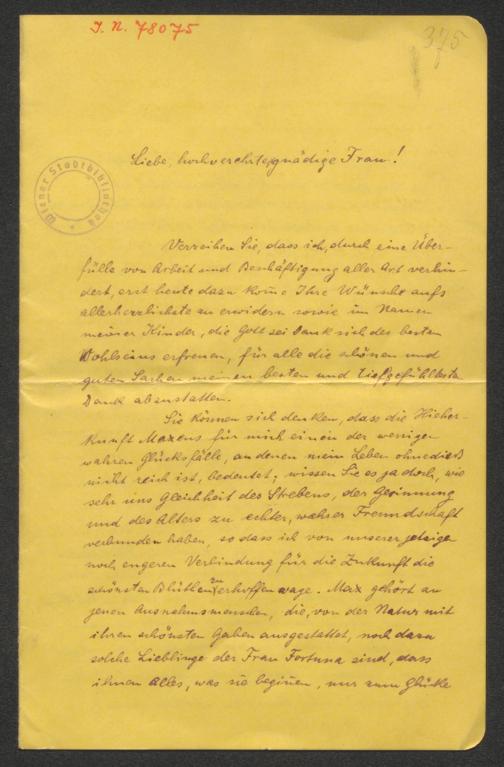 J. N. 78075
375
Wiener Stadtbibliothek
Liebe, hochverehrte, gnädige Frau!
Verzeihen Sie, dass ich, durch eine Über-
fülle von Arbeit und Beschäftigung aller Art verhin-
dert, erst heute dazu kom̄e Ihre Wünsche aufs
allerherzlichste zu erwidern sowie im Namen
meiner Kinder, die Gott sei Dank sich des besten
Wohlseins erfreuen, für alle die schönen und
guten Sachen meinen besten und tiefgefühltesten
Dank abzustatten.
Sie können sich denken, dass die Hieher-
kunft Maxens für mich einen der wenigen
wahren Glücksfälle, an denen mein Leben ohnedieß
nicht reich ist, bedeutet; wissen Sie es ja doch, wie
sehr uns Gleichheit des Strebens, der Gesinnung
und des Alters zu echter, wahrer Freundschaft
verbunden haben, so dass ich von unserer jetzigen
noch engeren Verbindung für die Zukunft die
schönsten Blüthen zu erhoffen wage. Max gehört zu
jenen Ausnahmsmenschen, die, von der Natur mit
ihren schönsten Gaben ausgestattet, noch dazu
solche Lieblinge der Frau Fortuna sind, dass
ihnen Alles, was sie begin̄en, nur zum Glücke